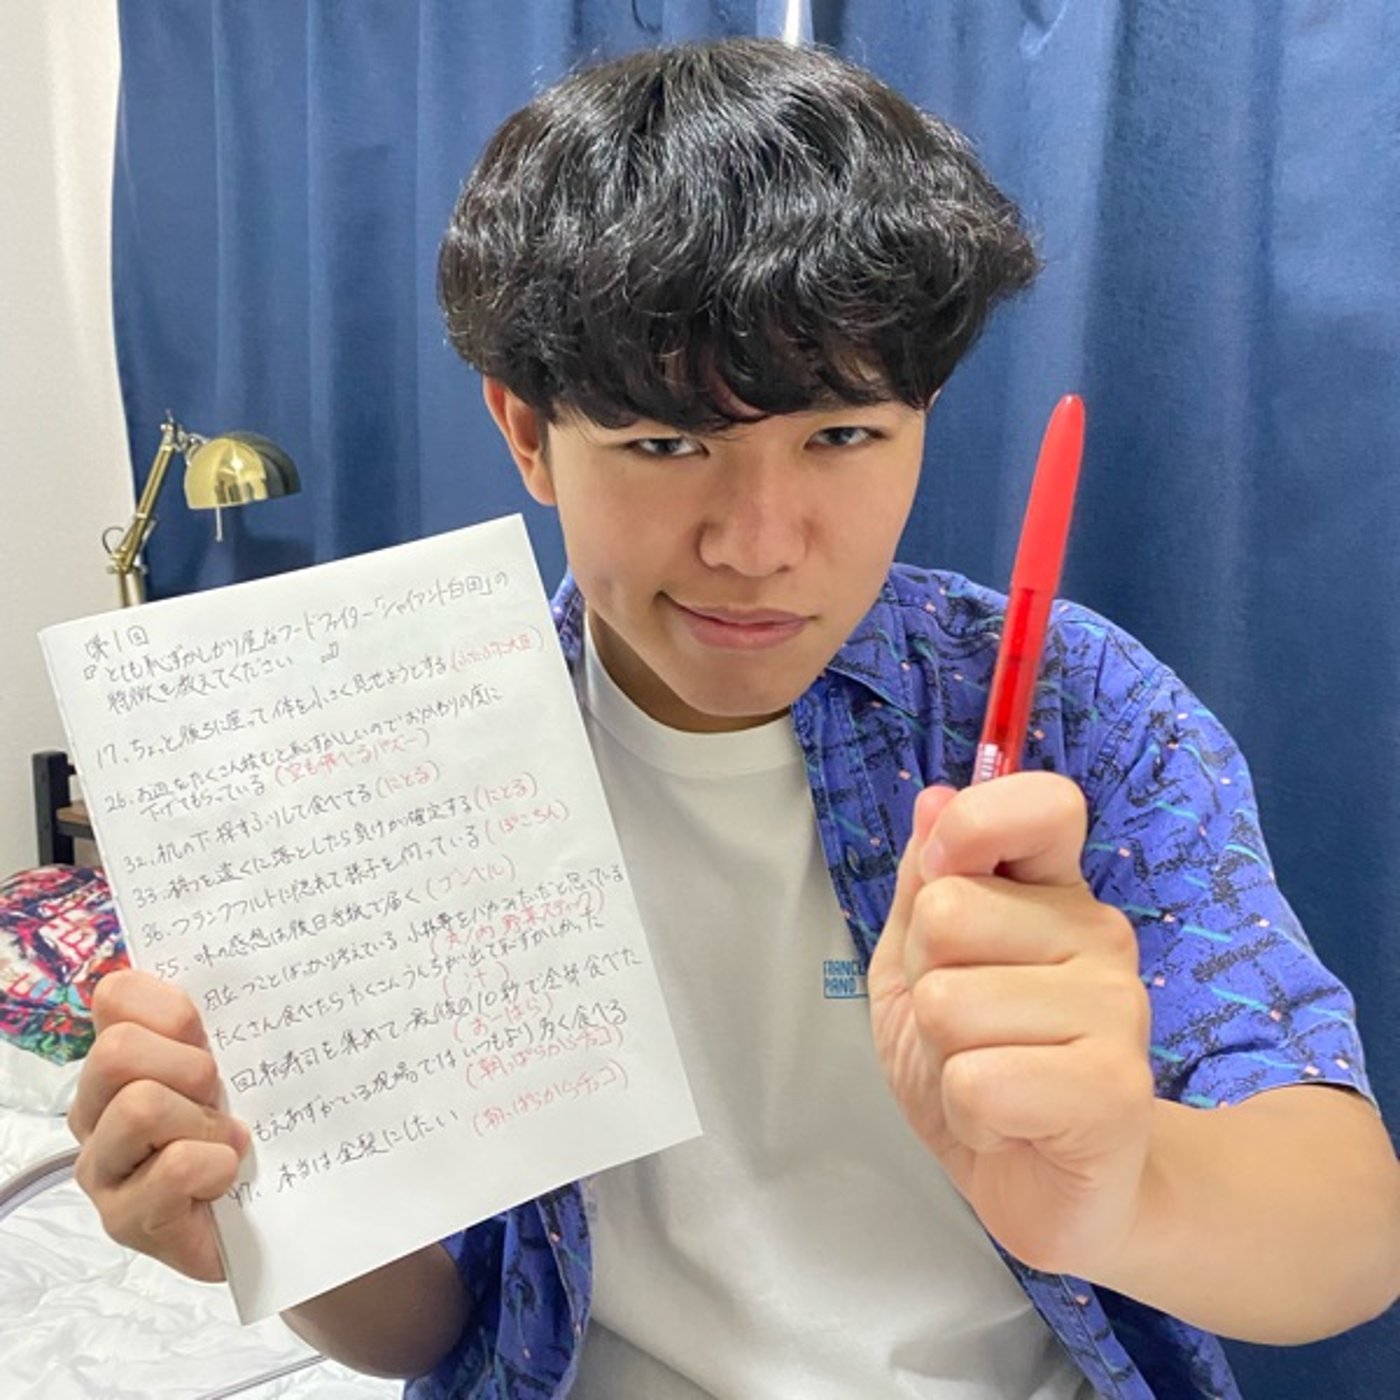 第1回
『とても恥ずかしがり屋なフードファイター「ジャイアント白田」の
特徴を教えてください』
17. ちょっと後ろに座って体を小さく見せようとする(ふたふた大臣)
26. お皿をたくさん積むと恥ずかしいのでおかわりの度に
下げてもらっている(空も飛べるパズー)
32. 机の下探するフリして食べてる(にとる)
33. 箸を遠くに落としたら負けが確定する(にとる)
36. フランクフルトに隠れて様子を伺っている(ぽこちん)
55. 味の感想は後日手紙で届く(ブンベル)
目立つことばっかり考えている小林尊をハヤみたいだと思っている
(丸ノ内 野菜スティック)
たくさん食べたらたくさんうんちが出て恥ずかしかった
(汁)
回転寿司を集めて最後の10秒で全部食べた
(おーはら)
もえあずがいる現場ではいつもより多く食べる
(朝っぱらからチョコ)
97. 本当は金髪にしたい(朝っぱらからチョコ)
FRANCE
PIANO